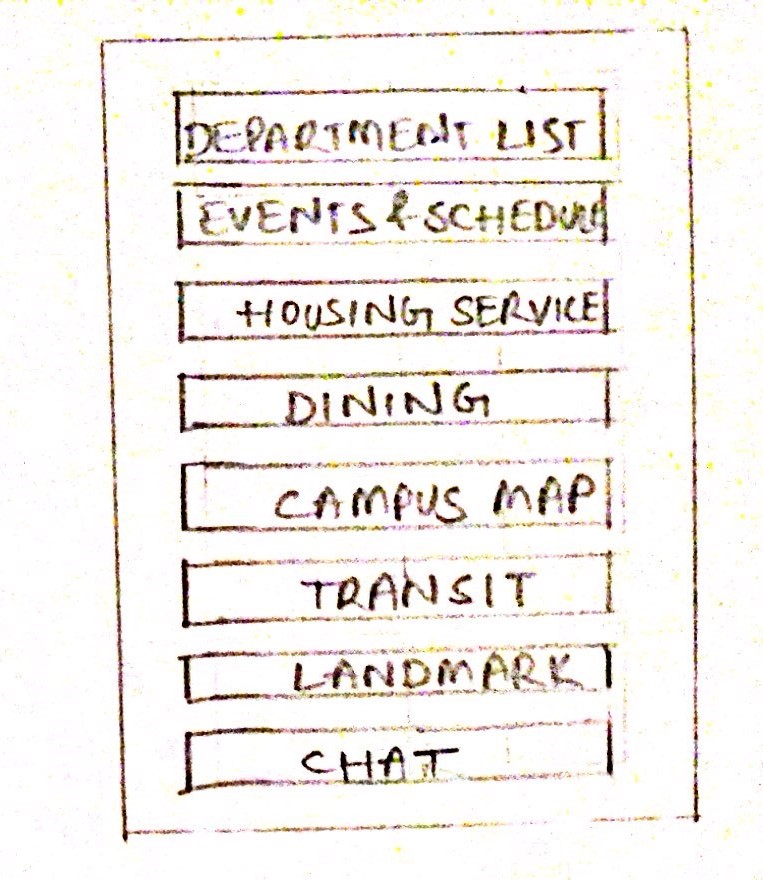 DEPARTMENT LIST
EVENTS & SCHEDULE
HOUSING SERVICE
DINING
CAMPUS MAP
TRANSIT
LANDMARK
CHAT